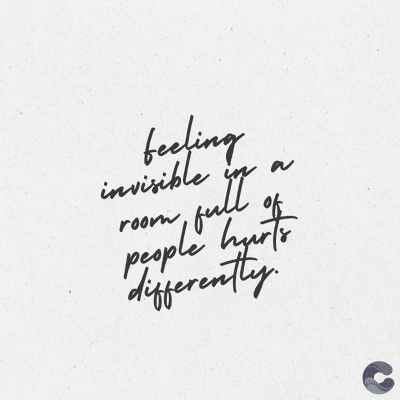 feeling
invisible in a
room full of
people hurts
differently.